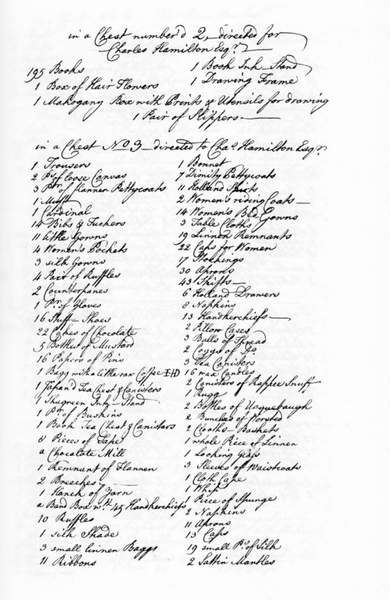 in a Chest number'd 2, directed for
Charles Hamilton Esqr.
195 Books
1 Box of Hair Flowers
1 Book Ink-Stand
1 Drawing Frame
1 Mahogany Box with Prints & Utensils for drawing
1 Pair of Slippers
in a Chest No. 3 directed to Chas. Hamilton Esqr.
1 Trousers
2 Ps. of loose Canvas
3 Pr. of flannen Pettycoats
1 Muff
1 Cardinal
14 Bibs & Tuckers
11 little Gowns
4 Women's Pockets
3 silk Gowns
4 Pair of Ruffles
2 Counterpanes
1 Pr. of Gloves
16 Stuff Shoes
22 Cakes of Chocolate
5 Bottles of Mustard
16 Papers of Pins
1 Bagg with a little raw Coffee
1 Japan'd Tea Chest & Canisters
1 Shagreen Ink-Stand
1 Pr. of Buskins
1 Tea Chest & Canisters
8 Pieces of Tape
a Chocolate Mill
1 Remnant of Flannen
2 Breeches
1 Hank of Yarn
a Band Box wth. 45 Handkerchiefs
10 Ruffles
1 silk Shade
3 small linnen Baggs
11 Ribbons
1 Bonnet
7 Dimity Pettycoats
11 Holland Shirts
2 Women's riding Coats
14 Women's Bed Gowns
3 Table Cloths
19 Linnen Remnants
22 Caps for Women
17 Stockings
30 Aprons
43 Shifts
6 Holland Drawers
8 Napkins
13 Handkerchiefs
2 Pillow Cases
3 Balls of Thread
2 Do.
3 Tea Canisters
16 wax Candles
2 Canisters of Rappee Snuff
1 Rugg
2 Bottles of Usquebaugh
2 Bunches of Worsted
2 Cloaths Baskets
1 whole Piece of Linnen
1 Looking Glass
3 Sleeves of Waistcoats
1 Cloth Cape
1 Whip
1 Piece of Spunge
2 Napkins
11 Aprons
13 Caps
19 small Ps. of Silk
2 Sattin Mantles